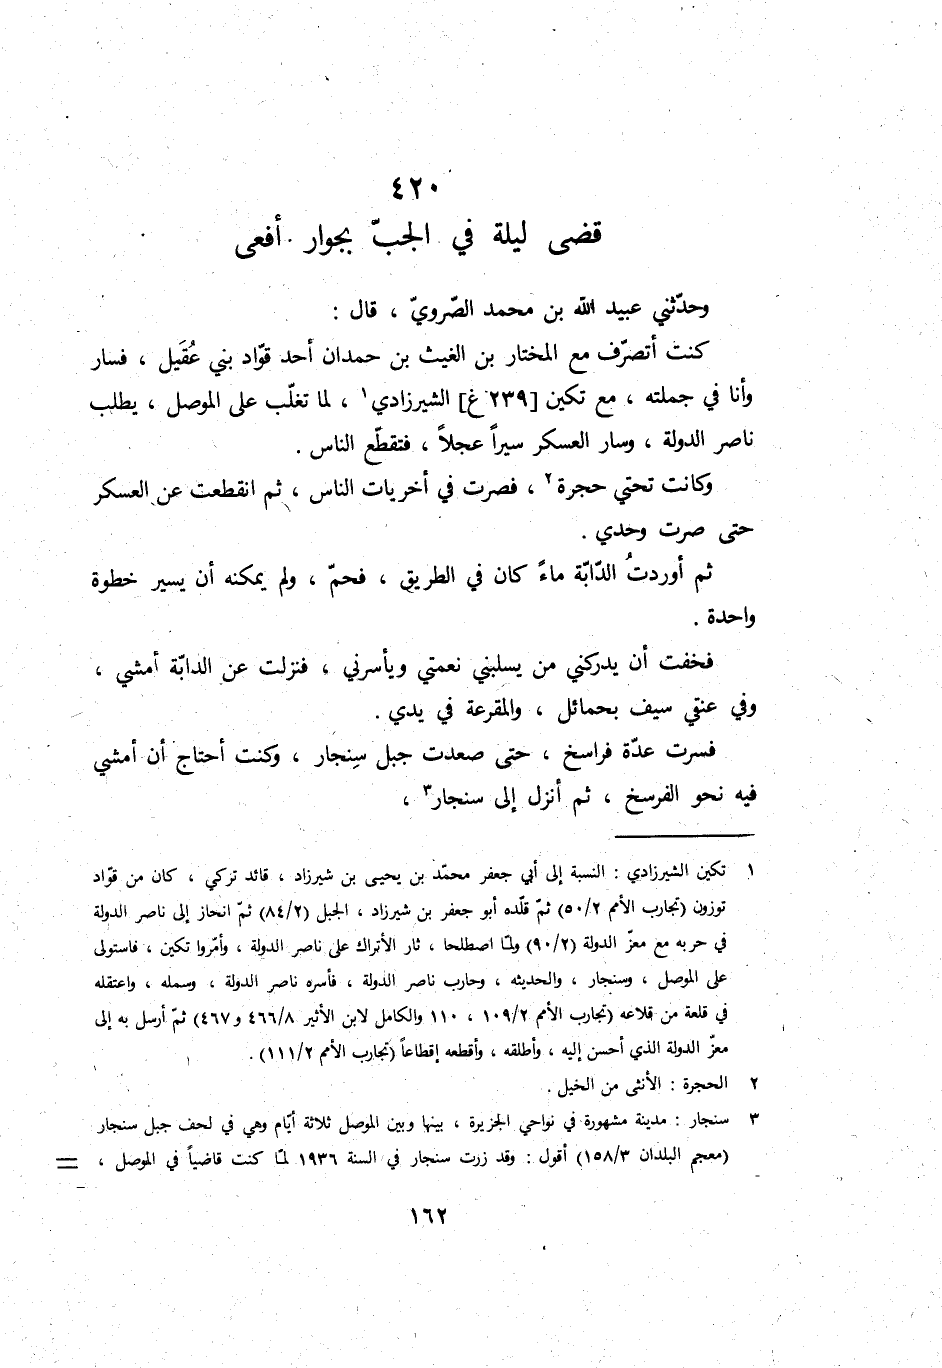 ٤٢٠
قضى ليلة في الجبّ بجوار أفعى
وحدّثني عبيد الله بن محمد الصّرويّ ، قال :
كنت أتصرّف مع المختار بن الغيث بن حمدان أحد قوّاد بني عُقَيل ، فسار
وأنا في جملته ، مع تكين [٢٣٩ غ] الشيرزادي١ ، لما تغلّب على الموصل ، يطلب
ناصر الدولة ، وسار العسكر سيراً عجلاً ، فتقطّع الناس .
وكانت تحتي حجرة٢ ، فصرت في أخريات الناس ، ثم انقطعت عن العسكر
حتى صرت وحدي .
ثم أوردتُ الدّابّة ماءً كان في الطريق ، فحمّ ، ولم يمكنه أن يسير خطوة
واحدة .
فخفت أن يدركني من يسلبني نعمتي ويأسرني ، فنزلت عن الدابّة أمشي ،
وفي عنقي سيف بحمائل ، والمقرعة في يدي .
فسرت عدّة فراسخ ، حتى صعدت جبل سِنجار ، وكنت أحتاج أن أمشي
فيه نحو الفرسخ ، ثم أنزل إلى سنجار٣ ،
١ تكين الشيرزادي : النسبة إلى أبي جعفر محمّد بن يحيى بن شيرزاد ، قائد تركي ، كان من قوّاد
توزون (تجارب الأمم ٥٠/٢) ثمّ قلّده أبو جعفر بن شيرزاد ، الجبل (٨٤/٢) ثمّ انحاز إلى ناصر الدولة
في حربه مع معزّ الدولة (٩٠/٢) ولمّا اصطلحا ، ثار الأتراك على ناصر الدولة ، وأمّروا تكين ، فاستولى
على الموصل ، وسنجار ، والحديثه ، وحارب ناصر الدولة ، فأسره ناصر الدولة ، وسمله ، واعتقله
في قلعة من قلاعه (تجارب الأمم ١٠٩/٢ ، ١١٠ والكامل لابن الأثير ٤٦٦/٨ و٤٦٧) ثمّ أرسل به إلى
معزّ الدولة الذي أحسن إليه ، وأطلقه ، وأقطعه إقطاعاً (تجارب الأمم ١١١/٢) .
٢ الحجرة : الأنثى من الخيل .
٣ سنجار : مدينة مشهورة في نواحي الجزيرة ، بينها وبين الموصل ثلاثة أيّام وهي في لحف جبل سنجار
(معجم البلدان ١٥٨/٣) أقول : وقد زرت سنجار في السنة ١٩٣٦ لمّا كنت قاضياً في الموصل ، =
١٦٢